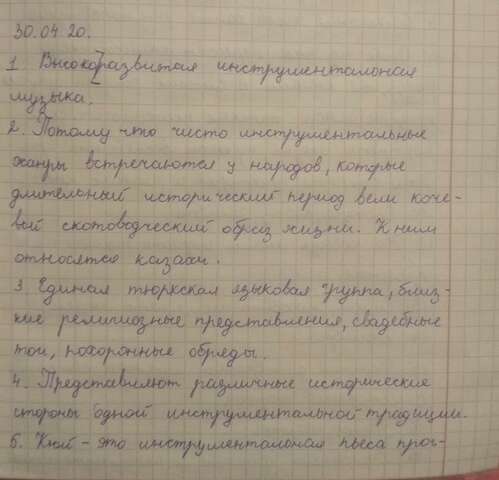 30.04.20.
1. Высокоразвитая инструментальная
музыка.
2. Потому что чисто инструментальные
жанры встречаются у народов, которые
длительный исторический период вели коче-
вой скотоводческий образ жизни. К ним
относятся казахи.
3. Единая тюркская языковая группа, близ-
кие религиозные представления, свадебные
тои, похоронные обряды.
4. Представляют различные исторические
стороны одной инструментальной традиции.
5. Кюй - это инструментальная пьеса прог-